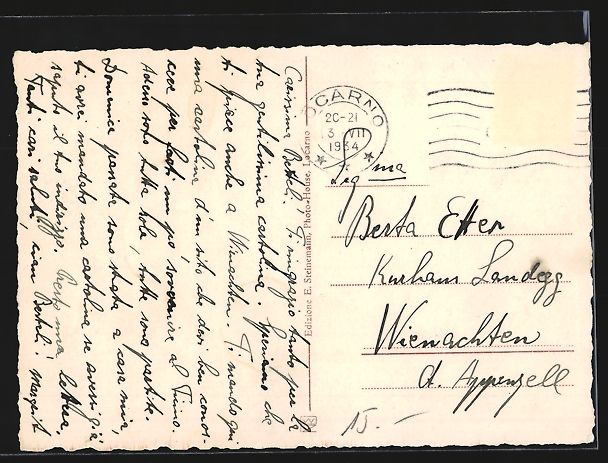 Carissima Berteli. Ti ringrazio tanto per la
tua gentilissima cartolina. Speriamo che
ti piace anche a Wienachten. Ti mando qui
una cartolina d'un sito che devi ben conos-
cere per farti un po' sovvenire al Ticino.
Adesso sono tutta sola, tutte sono partite.
Domenica passata sono stata a casa mia,
ti avrei mandato una cartolina se avessi già
saputo il tuo indirizzo. Presto una lettera.
Tanti cari saluti, ciau Berteli! Margrit
Edizione E. Steinemann, Photo-House, Locarno
LOCARNO
20-21
3 VII
1934
Sig.ma
Berta Etter
Kurhaus Landegg
Wienachten
Ct. Appenzell
15.-